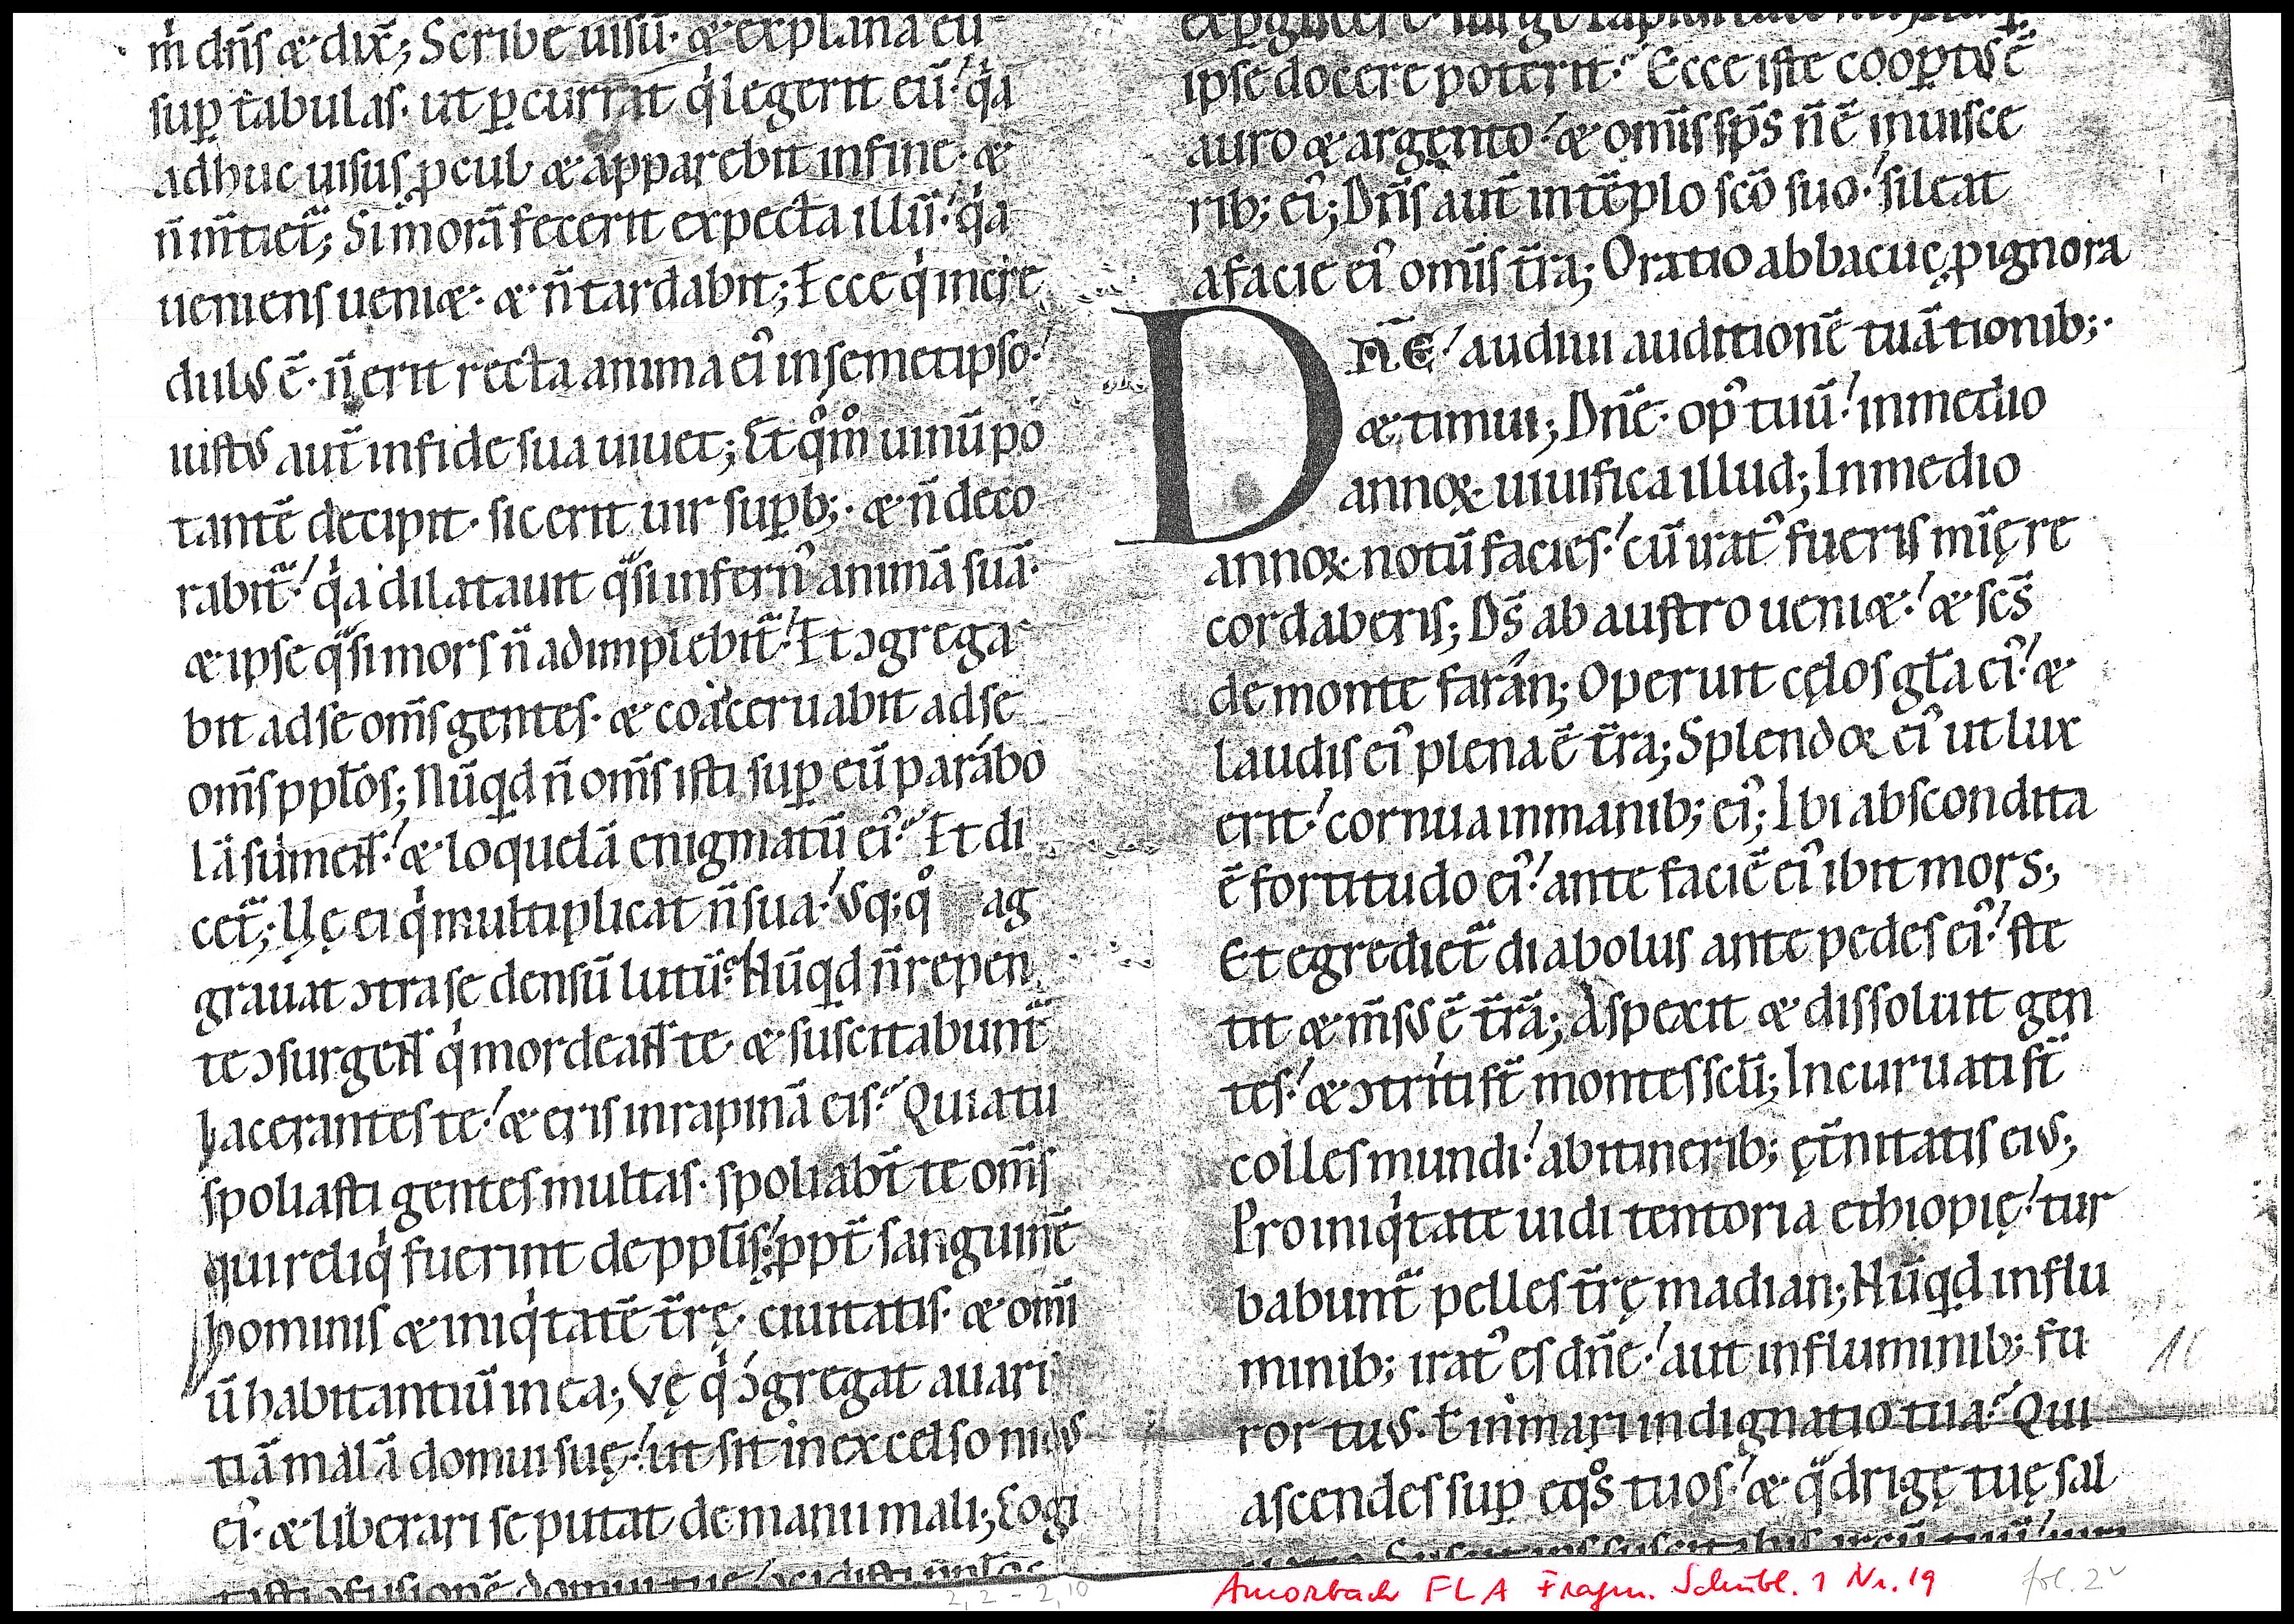 m̍ dñs & dix̃; Scribe uisũ· & explana eũ
suꝑ tabulas· ut ꝑcurrat q̍ legerit eũ! q̍a
adhuc uisus ꝓcul & apparebit in fine· &
ñ m̃tiet̃; Si morã fecerit expecta illũ! q̍a
ueniens ueni&· & ñ tardabit; Ecce q̍ incre
dulus ẽ· ñ erit recta anima ei᾿ in semetipso!
iustus aut̃ in fide sua uiuet; Et qm̊ uinũ po
tantẽ decipit· sic erit uir suꝑb;· & ñ deco
rabit̃! q̍a dilatauit q̃si infern᾿ animã suã·
& ipse q̃si mors ñ adimplebit̃! Et ɔgrega
bit ad se om̃s gentes· & coaceruabit ad se
om̃s pplo̅s; Nũqd ñ om̃s isti suꝑ eũ parábo
lã sument! & loquelã enigmatũ ei᾿? Et di
cet̃; Vę ei q̍ multiplicat ñ sua! usq; q̊ ag
grauat ɔtra se densũ lutũ? Nũqd ñ repen
te ɔsurgent q̍ mordeant te & suscitabunt̃
lacerantes te! & eris in rapinã eis? Quia tu
spoliasti gentes multas· spoliabt̃ te om̃s
qui reliq̍ fuerint de pplis! ꝓpt̃ sanguinẽ
hominis & iniq̍tatẽ t̃rę· ciuitatis· & om̃i
ũ habitantiũ in ea; Vę q̍ ɔgregat auari
tiã malã domui suę! ut sit in excelso nidus
ei᾿· & liberari se putat de manu mali; Cogi
tasti ɔfusionẽ domui tuę! ɔcidisti
2,2 – 2,10
ipse docere poterit? Ecce iste cooꝑtus ẽ
auro & argento! & om̃is sps̃ ñ ẽ in uisce
rib; ei᾿; Dñs aut̃ in tẽplo sc̃o suo! sileat
a facie ei᾿ om̃is t̃ra; Oratio abbacuc ꝓ ignora
DÑE! audiui auditionẽ tuã tionib;·
& timui; Dñe· op᾿ tuũ! in medio
annoꝝ uiuifica illud; In medio
annoꝝ notũ facies! cũ irat᾿ fueris mię re
cordaberis; Ds̃ ab austro ueni&! & sc̃s
de monte farán; Operuit cęlos gl̃a ei᾿! &
laudis ei᾿ plena ẽ t̃ra; Splendor ei᾿ ut lux
erit! cornua in manib; ei᾿; Ibi abscondita
ẽ fortitudo ei᾿! ante faciẽ ei᾿ ibit mors;
Et egrediet̃ diabolus ante pedes ei᾿! ste
tit & m̃sus ẽ t̃rã; Aspexit & dissoluit gen
tes! & ɔtriti st̃ montes scl̃i; Incuruati st̃
colles mundi! ab itinerib; ęt̃nitatis eius;
Pro iniq̍tate uidi tentoria ethiopię! tur
babunt̃ pelles t̃rę madian; Nũqd in flu
minib; irat᾿ es dñe! aut in fluminib; fu
ror tuus· ł in mari indignatio tua? Qui
ascendes suꝑ eqo̊s tuos! & q̃drigę tuę sal
Amorbach FLA Fragm. Schubl. 1 Nr. 19
fol. 2v